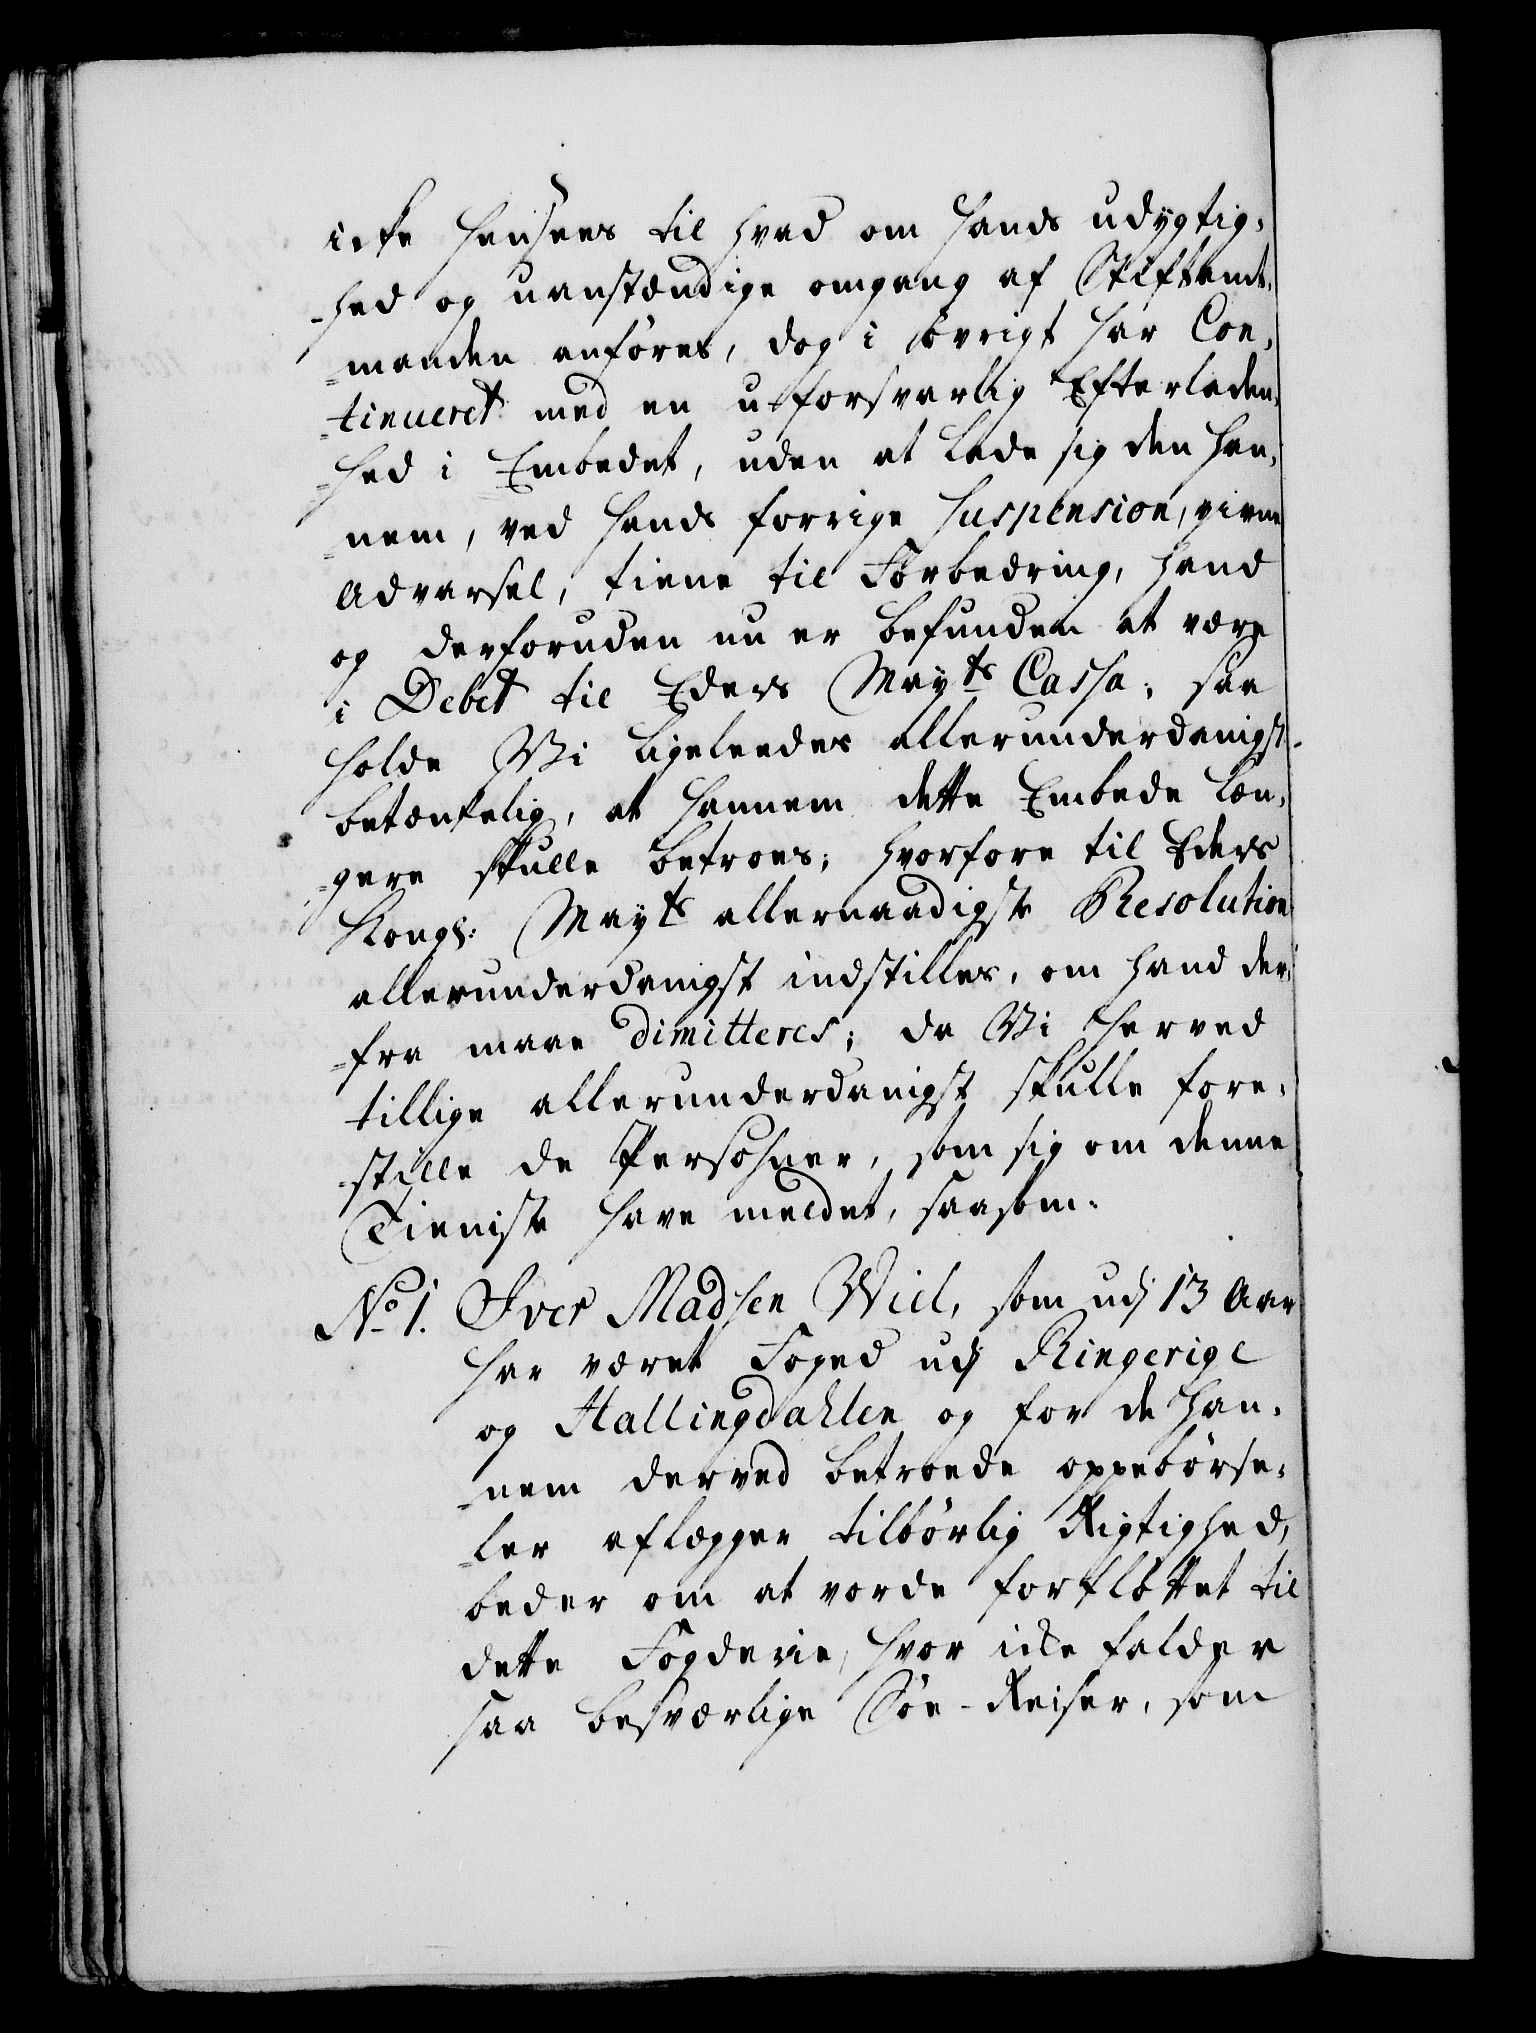 icke henseer til hvad om hands udygtig-
-hed og uanstændige omgang af Stiftamt-
-manden anføres, dog i øvrigt har Con-
-tinueret med en u-forsvarlig Efterladen-
-hed i Embedet, uden at lade sig den han-
-nem, ved hands forrige Suspension, givne
Advarsel, tiene til Forbedring, hand
og derforuden nu er befunden at være
i Debet til Eders Mayts Cassa; saa
holde Vi ligeleedes allerunderdanigst
betænkelig, at hannem dette Embede læn-
-gere skulle betroes; hvorfore til Eders
Kongl: Mayts allernaadigste Resolution
allerunderdanigst indstilles, om hand der-
-fra maae dimitteres; da Vi herved
tillige allerunderdanigst skulle fore-
-stille de Persohner, som sig om denne
Tieniste have meldet, saasom.
No 1. Iver Madsen Wiel, som udj 13 Aar
har været Foged udj Ringerige
og Hallingdahlen og for de han-
-nem derved betroede oppebørse-
-ler aflegger tilbørlig Rigtighed,
beder om at vorde forfløttet til
dette Fogderie, hvor icke falder
saa besværlige Søe-Reiser, som